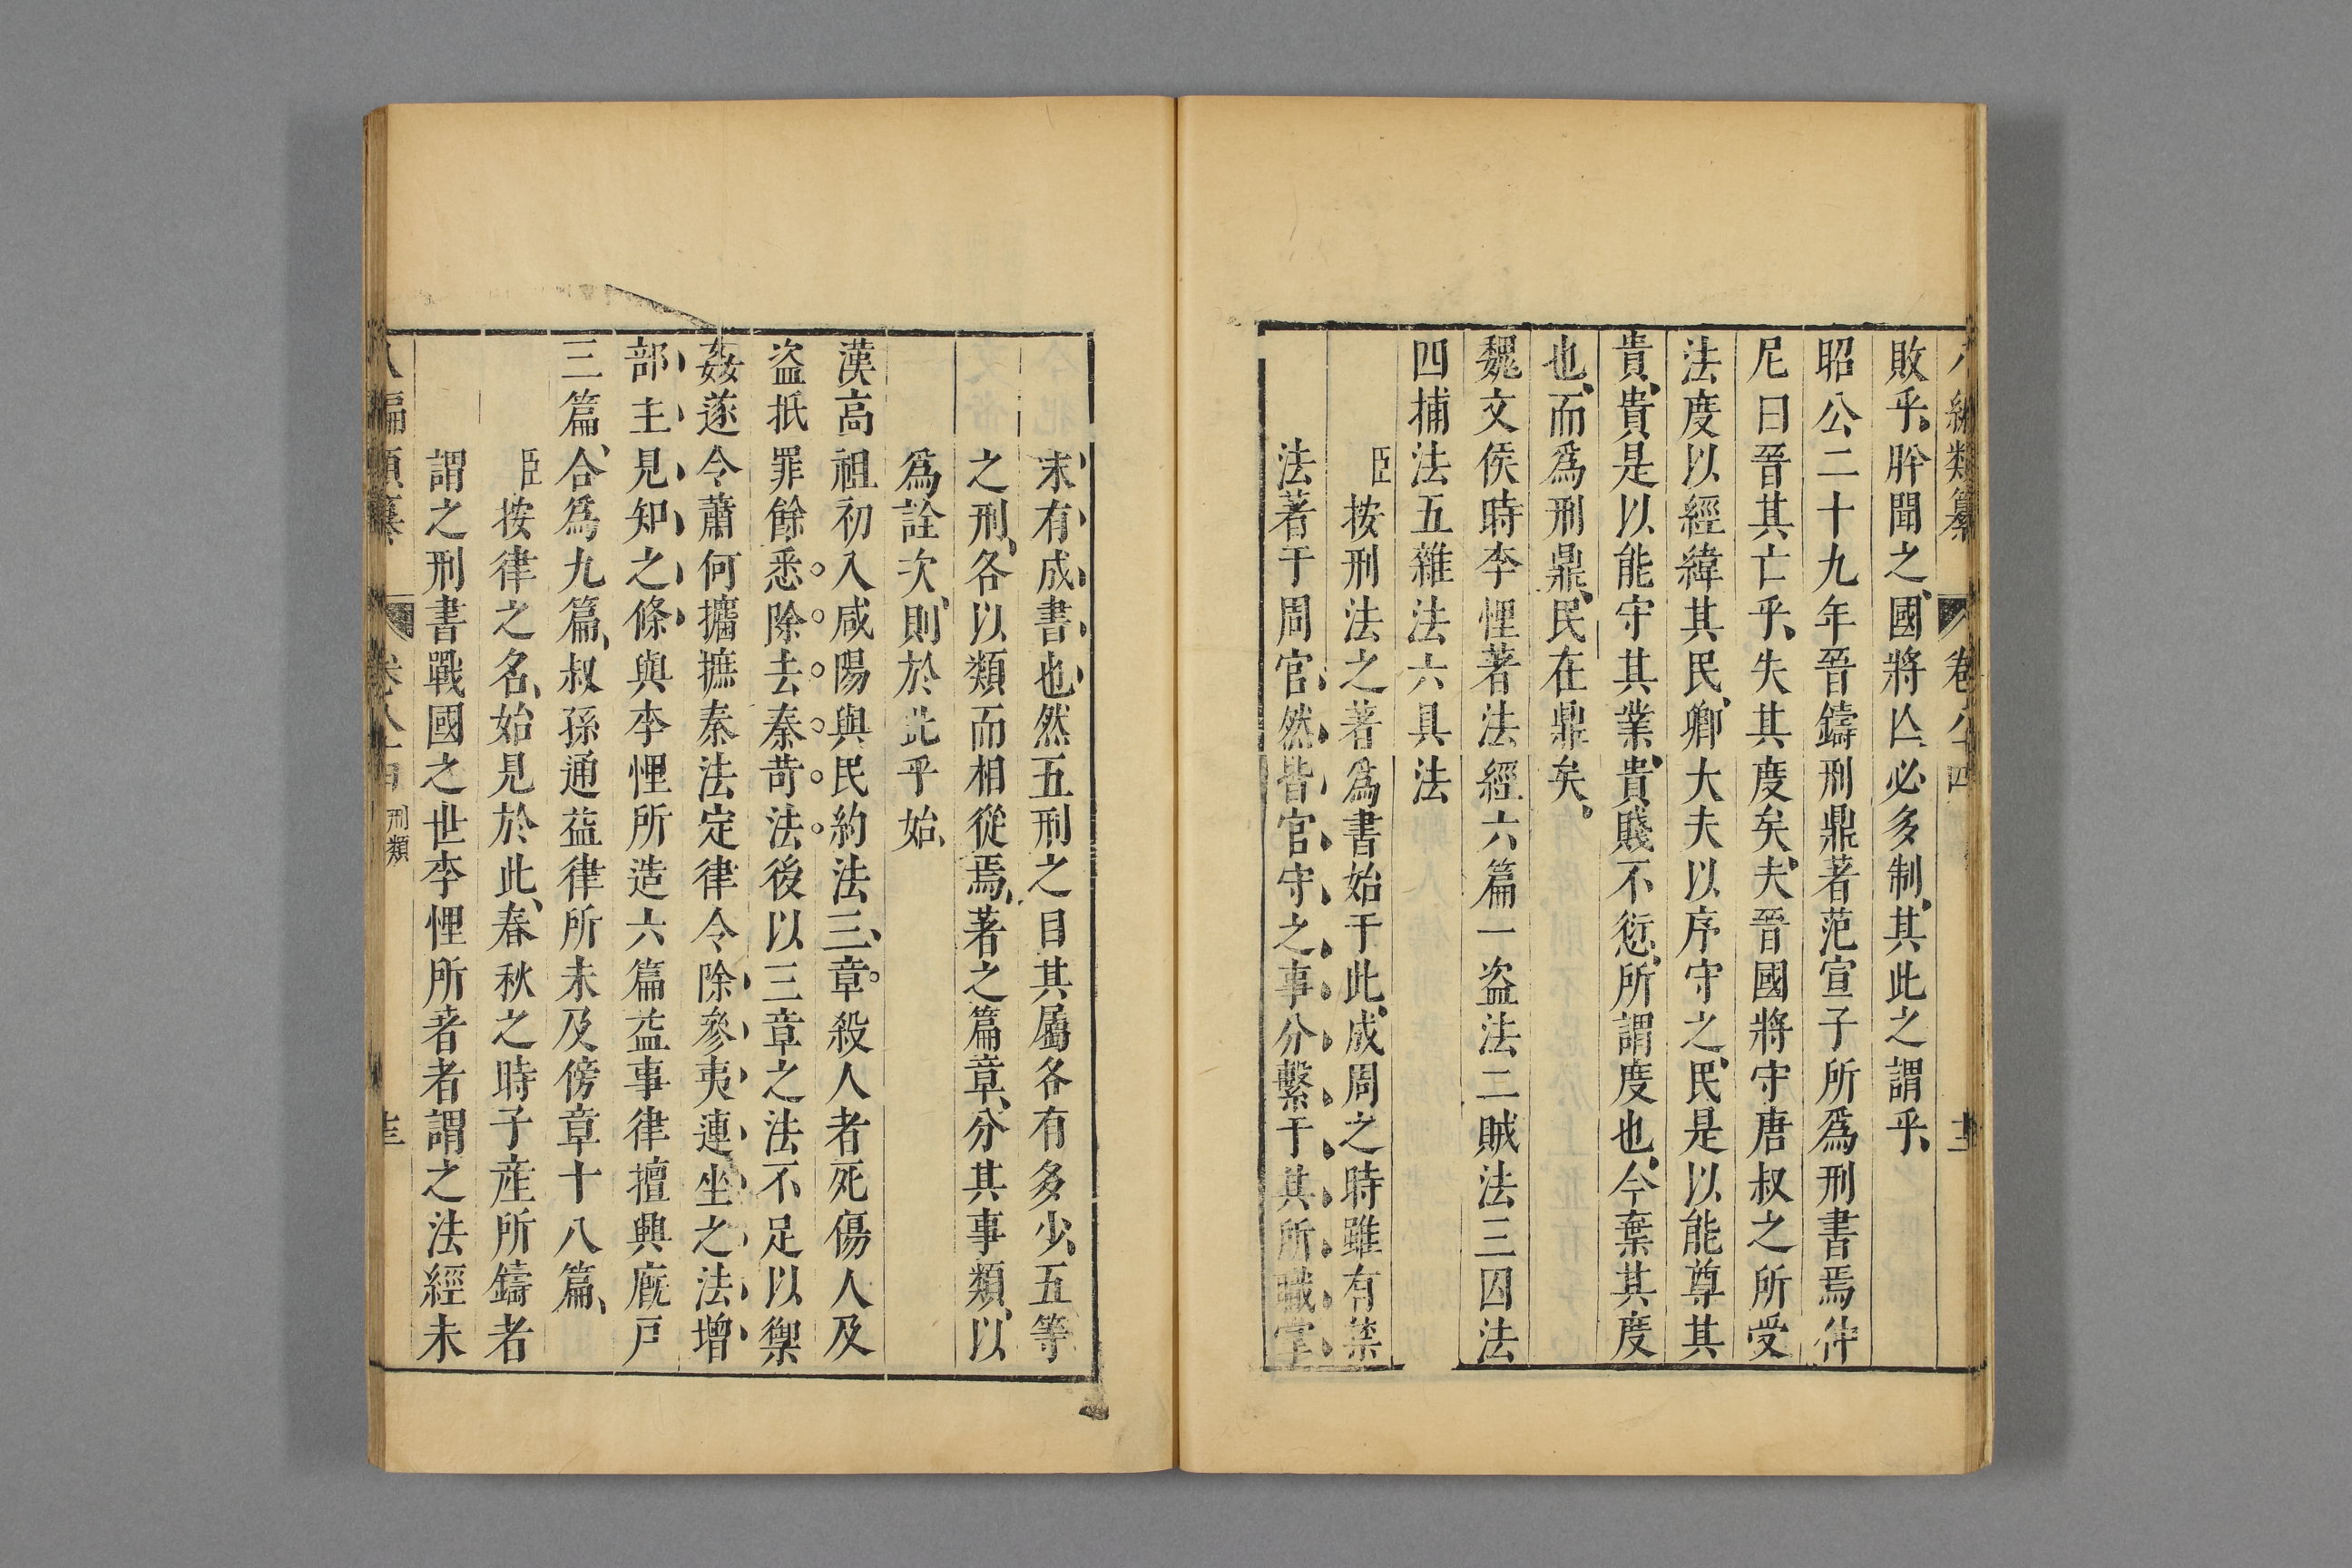 八編類纂 卷八十四 十三
敗乎、肸聞之、國將亾必多制、其此之謂乎、
昭公二十九年晉鑄刑鼎著范宣子所爲刑書焉仲
尼曰晉其亡乎、失其度矣、夫晉國將守唐叔之所受
法度以經緯其民、卿大夫以序守之、民是以能尊其
貴、貴是以能守其業、貴賤不愆、所謂度也、今棄其度
也、而爲刑鼎、民在鼎矣。
魏文侯時李悝著法經六篇一盗法二賊法三囚法
四捕法五雜法六具法
臣按刑法之著爲書始于此、成周之時雖有禁
法著于周官、然皆官守之事分繫于其所職掌
未有成書也、然五刑之目其屬各有多少、五等
之刑、各以類而相從焉、著之篇章、分其事類、以
爲詮次、則於此乎始、
漢高祖初入咸陽與民約法三章。殺人者死傷人及
盗抵罪餘悉除去秦苛法後以三章之法不足以禦
姦遂令蕭何攟摭秦法定律令除參夷連坐之法增
部主見知之條與李悝所造六篇益事律擅興廐戸
三篇、合爲九篇、叔孫通益律所未及傍章十八篇、
臣按律之名、始見於此、春秋之時子産所鑄者
謂之刑書戰國之世李悝所著者謂之法經未
八編類纂 卷八十四 刑類